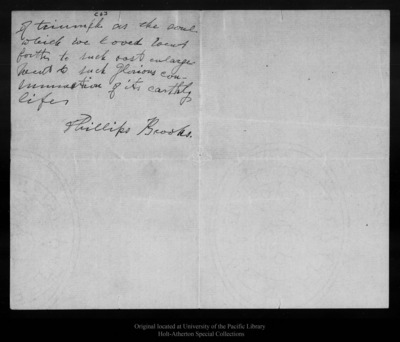 of triumph as the soul
which we loved went
forth to such vast enlarge
ment to such glorious con-
summation of its earthly
life,
Phillips Brooks.
Original located at University of the Pacific Library
Holt-Atherton Special Collections